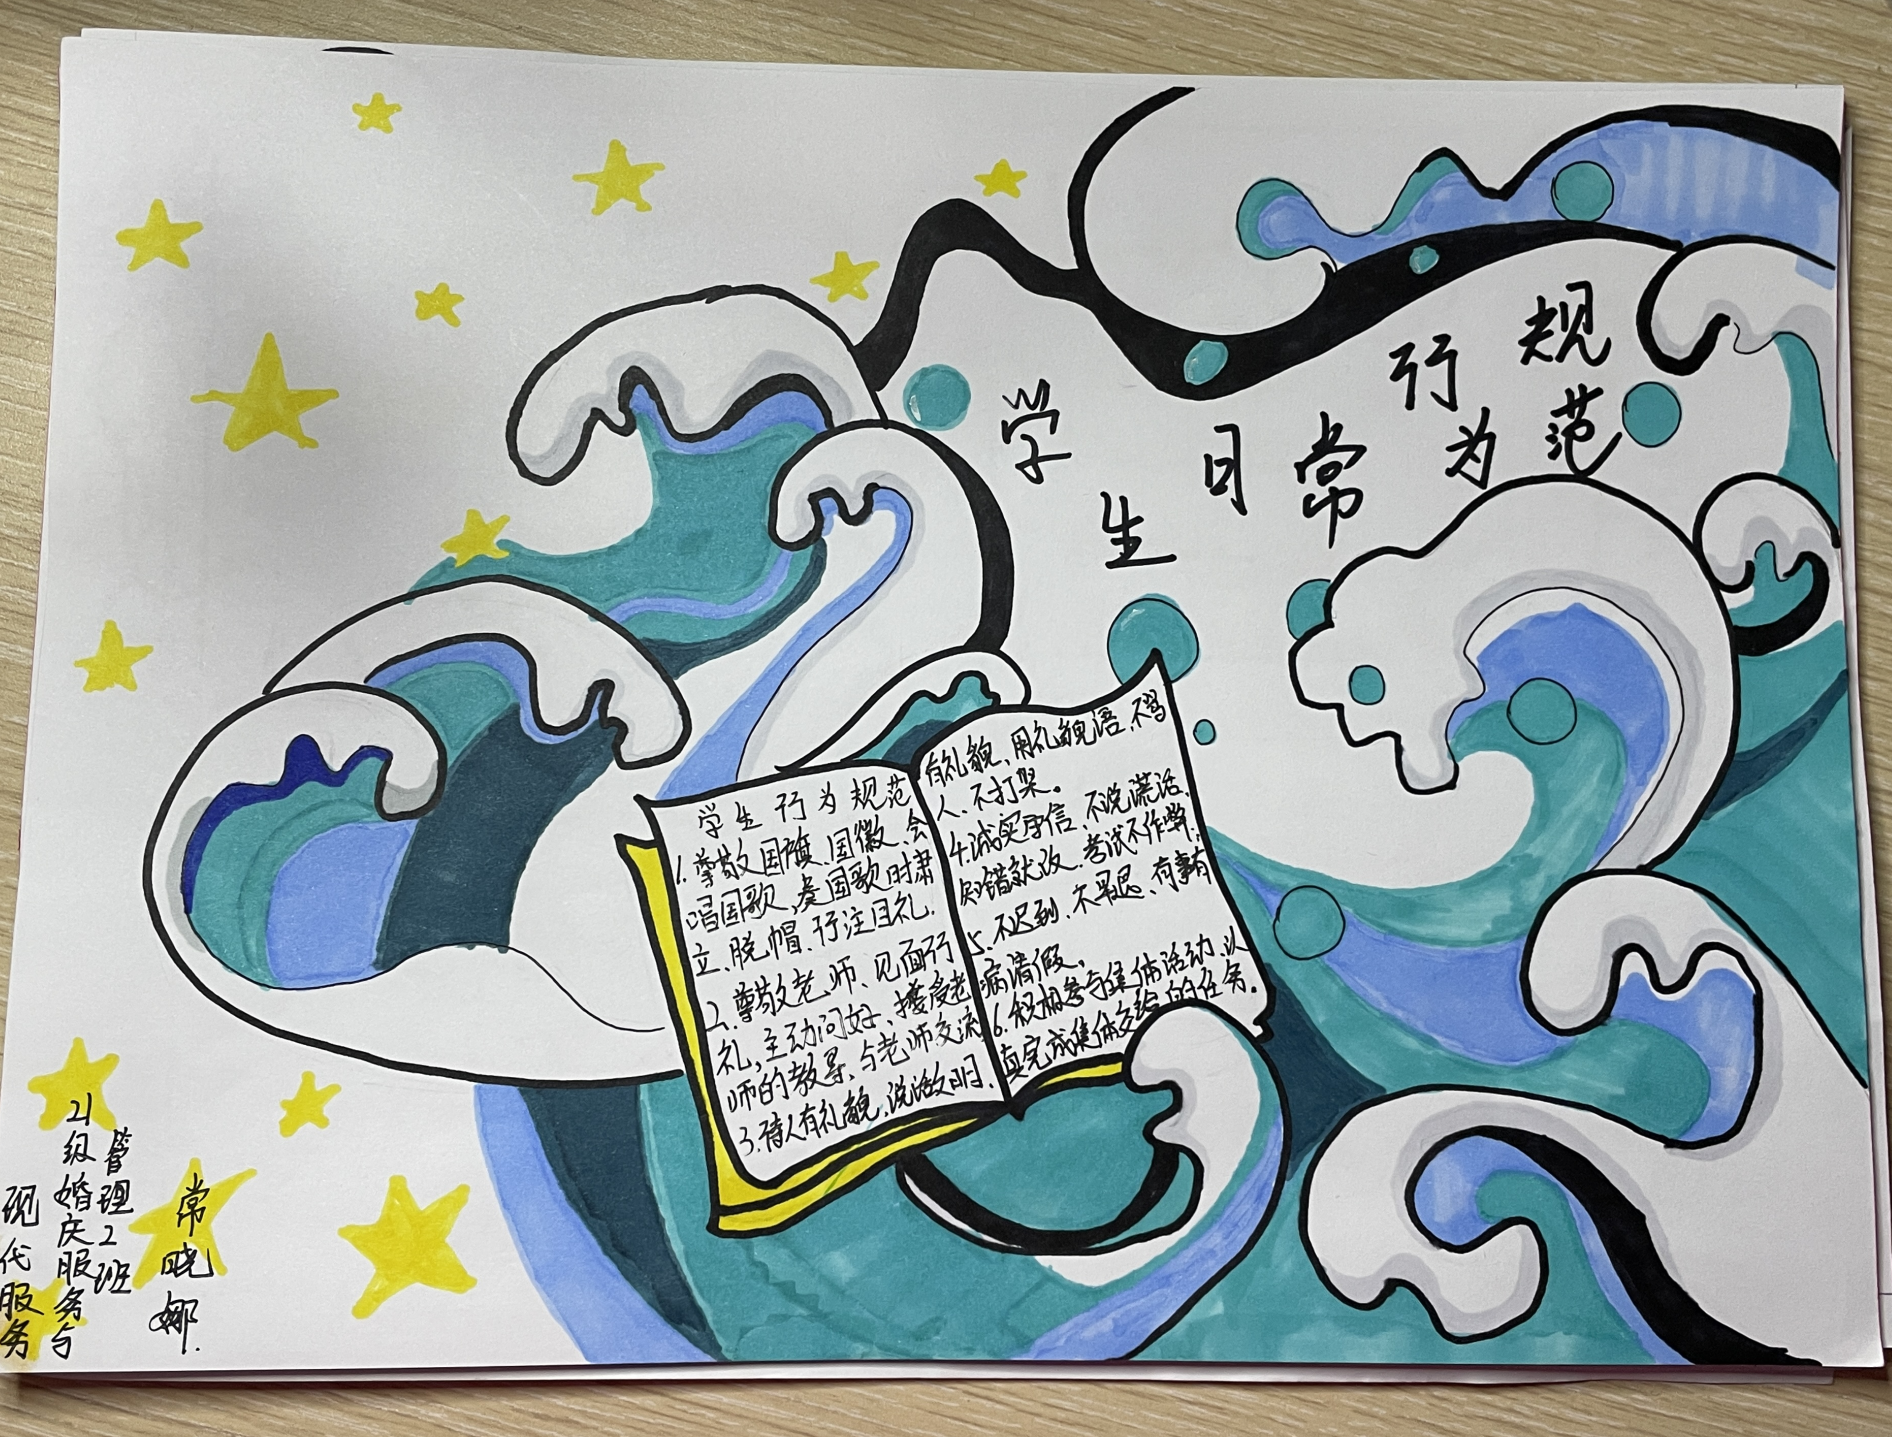 学生日常行为规范
学生行为规范
1.尊敬国旗、国徽、会
唱国歌,奏国歌时肃
立、脱帽、行注目礼.
2.尊敬老师、见面行
礼,主动问好、接受老
师的教导,与老师交流
3.待人有礼貌,说话文明.
有礼貌,用礼貌语.不骂
人、不打架。
4.诚实守信、不说谎话、
知错就改.考试不作弊.
5.不迟到、不早退、有事有
病请假。
6.积极参与集体活动、认
真完成集体交给的任务。
现代服务
21级婚庆服务与
管理2班
常晓娜.